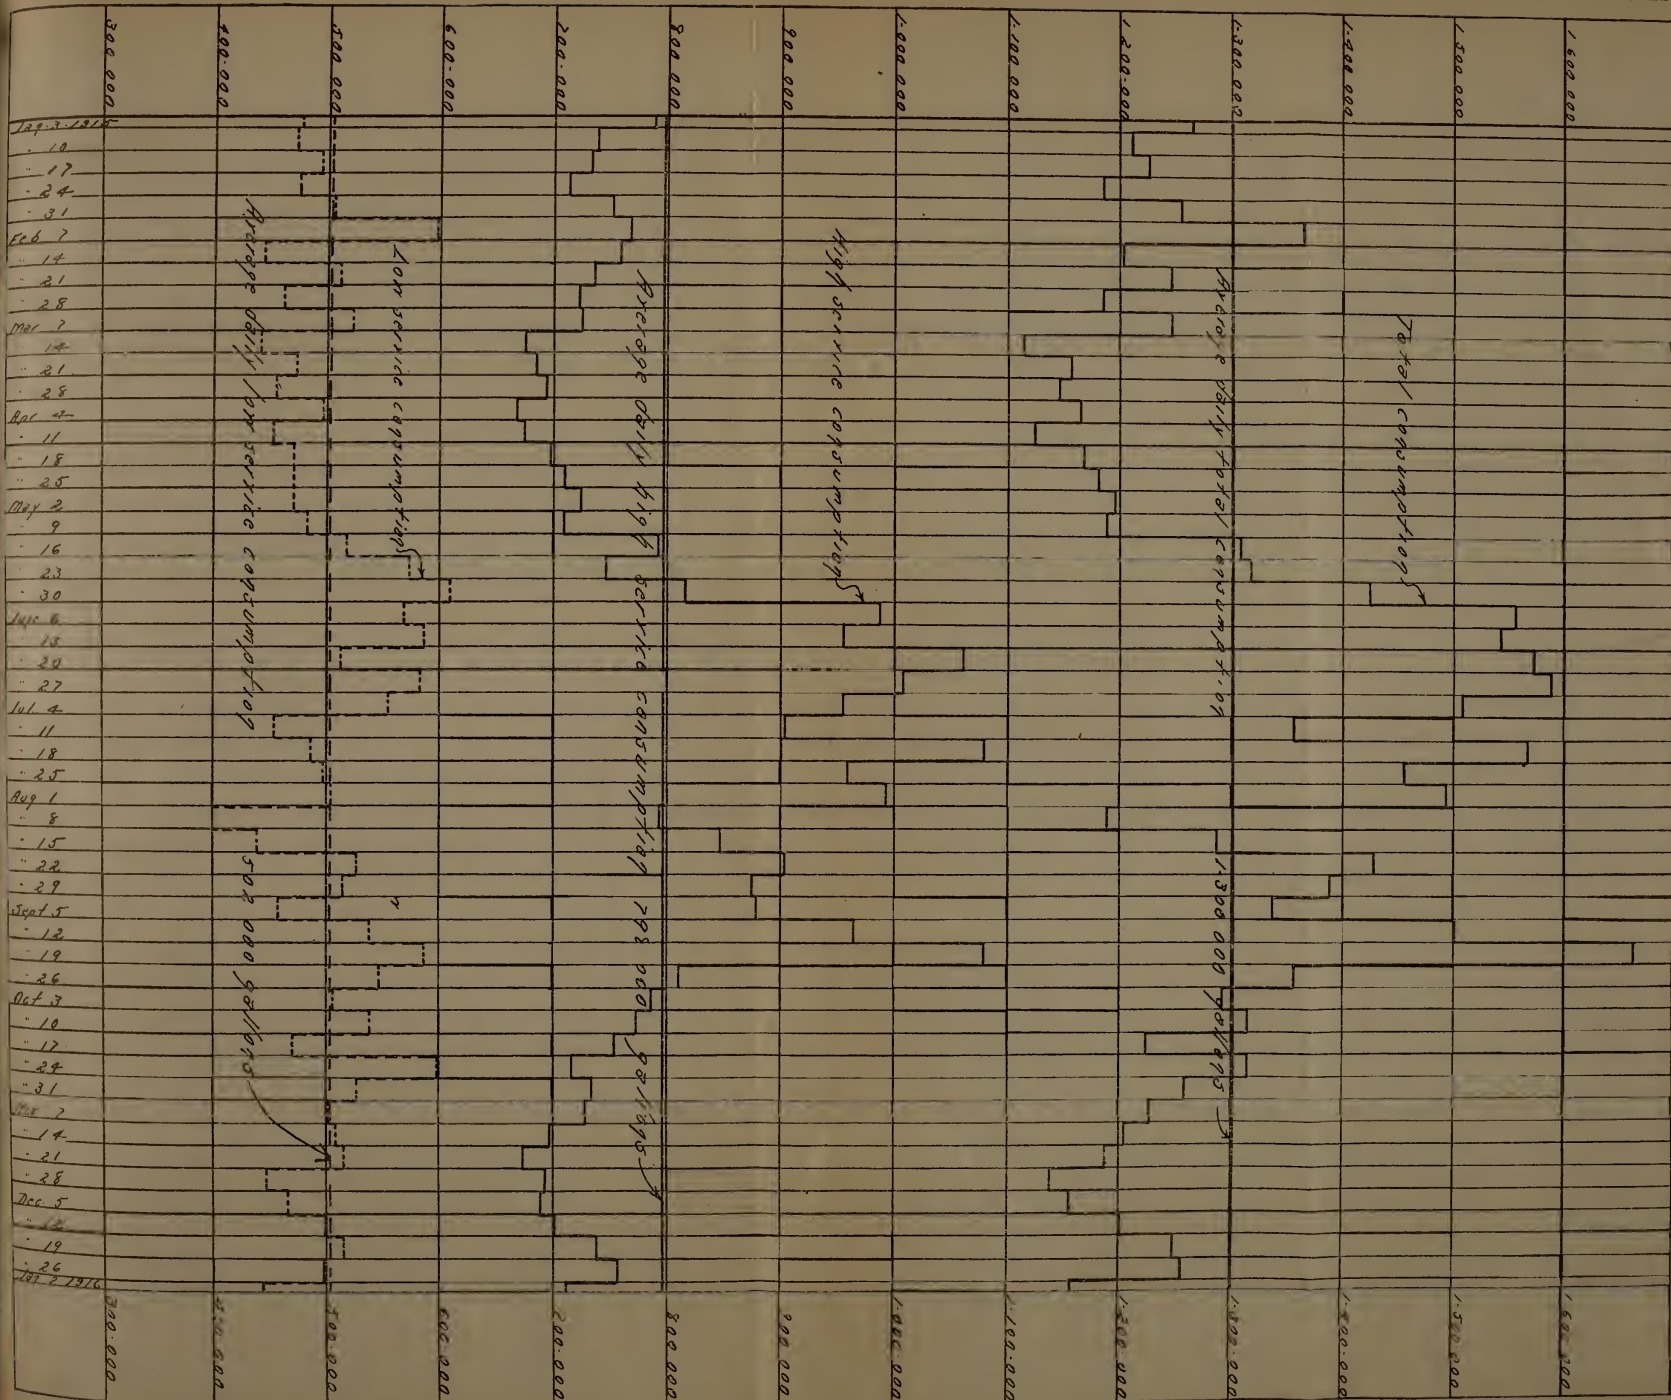 300.000
400.000
500.000
600.000
700.000
800.000
900.000
1.000.000
1.100.000
1.200.000
1.300.000
1.400.000
1.500.000
1.600.000
Jan. 3. 1915
" 10
" 17
" 24
" 31
Feb 7
" 14
" 21
" 28
Mar 7
" 14
" 21
" 28
Apr 4
" 11
" 18
" 25
May 2
" 9
" 16
" 23
" 30
June 6
" 13
" 20
" 27
Jul. 4
" 11
" 18
" 25
Aug 1
" 8
" 15
" 22
" 29
Sept 5
" 12
" 19
" 26
Oct 3
" 10
" 17
" 24
" 31
Nov 7
" 14
" 21
" 28
Dec 5
" 12
" 19
" 26
Jan 2 1916
Total consumption
Average daily total consumption 1.300 000 gallons
High service consumption
Average daily high service consumption 798 000 gallons
Low service consumption
Average daily low service consumption 502 000 gallons
300.000
400.000
500.000
600.000
700.000
800.000
900.000
1.000.000
1.100.000
1.200.000
1.300.000
1.400.000
1.500.000
1.600.000